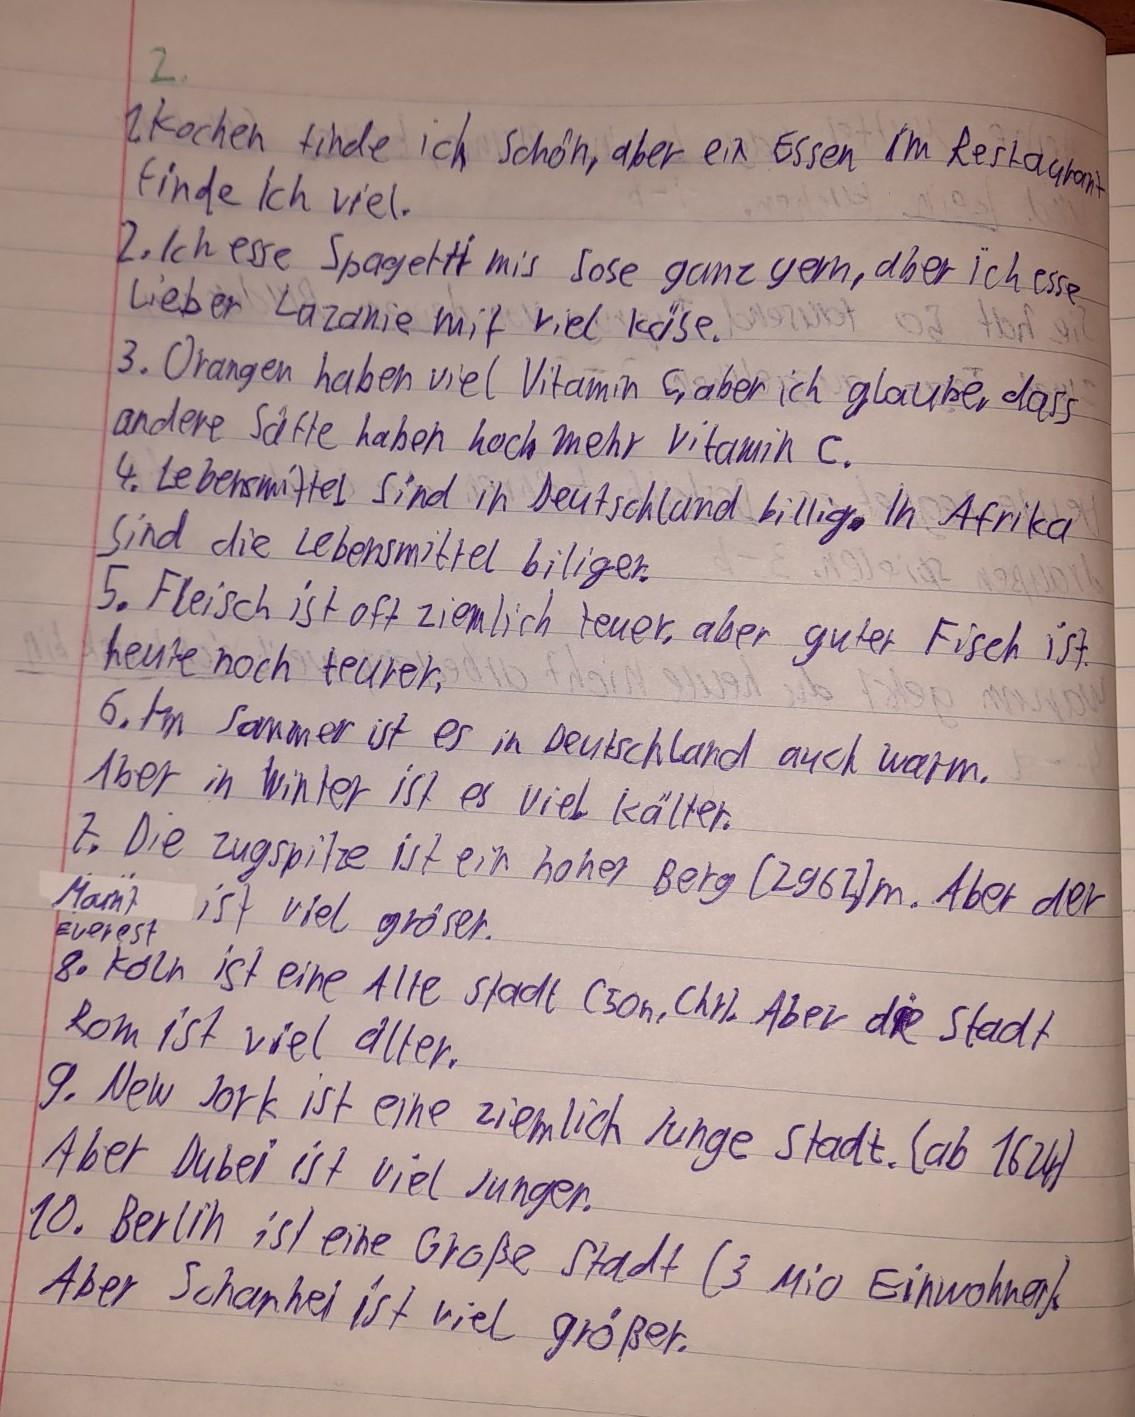 2.
1. Kochen finde ich schön, aber ein Essen im Restaurant
finde Ich viel.
2. Ich esse Spagetti mis Sose ganz gern, aber ich esse
Lieber Lazanie mit viel käse.
3. Orangen haben viel Vitamin C, aber ich glaube, dass
andere Säfte haben hoch mehr Vitamin C.
4. Lebensmittel sind in Deutschland billig. In Afrika
sind die Lebensmittel biliger.
5. Fleisch ist oft ziemlich teuer, aber guter Fisch ist
heute noch teurer.
6. Im Sommer ist es in Deutschland auch warm.
Aber in Winter ist es viel kälter.
7. Die Zugspitze ist ein hoher Berg (2962)m. Aber der
Maunt
Everest ist viel gröser.
8. Köln ist eine Alte stadt (50n. Chr). Aber die Stadt
Rom ist viel älter.
9. New Jork ist eine ziemlich Junge Stadt. (ab 1624)
Aber Dubei ist viel Junger.
10. Berlin ist eine Große Stadt (3 Mio Einwohner).
Aber Schanhei ist viel größer.